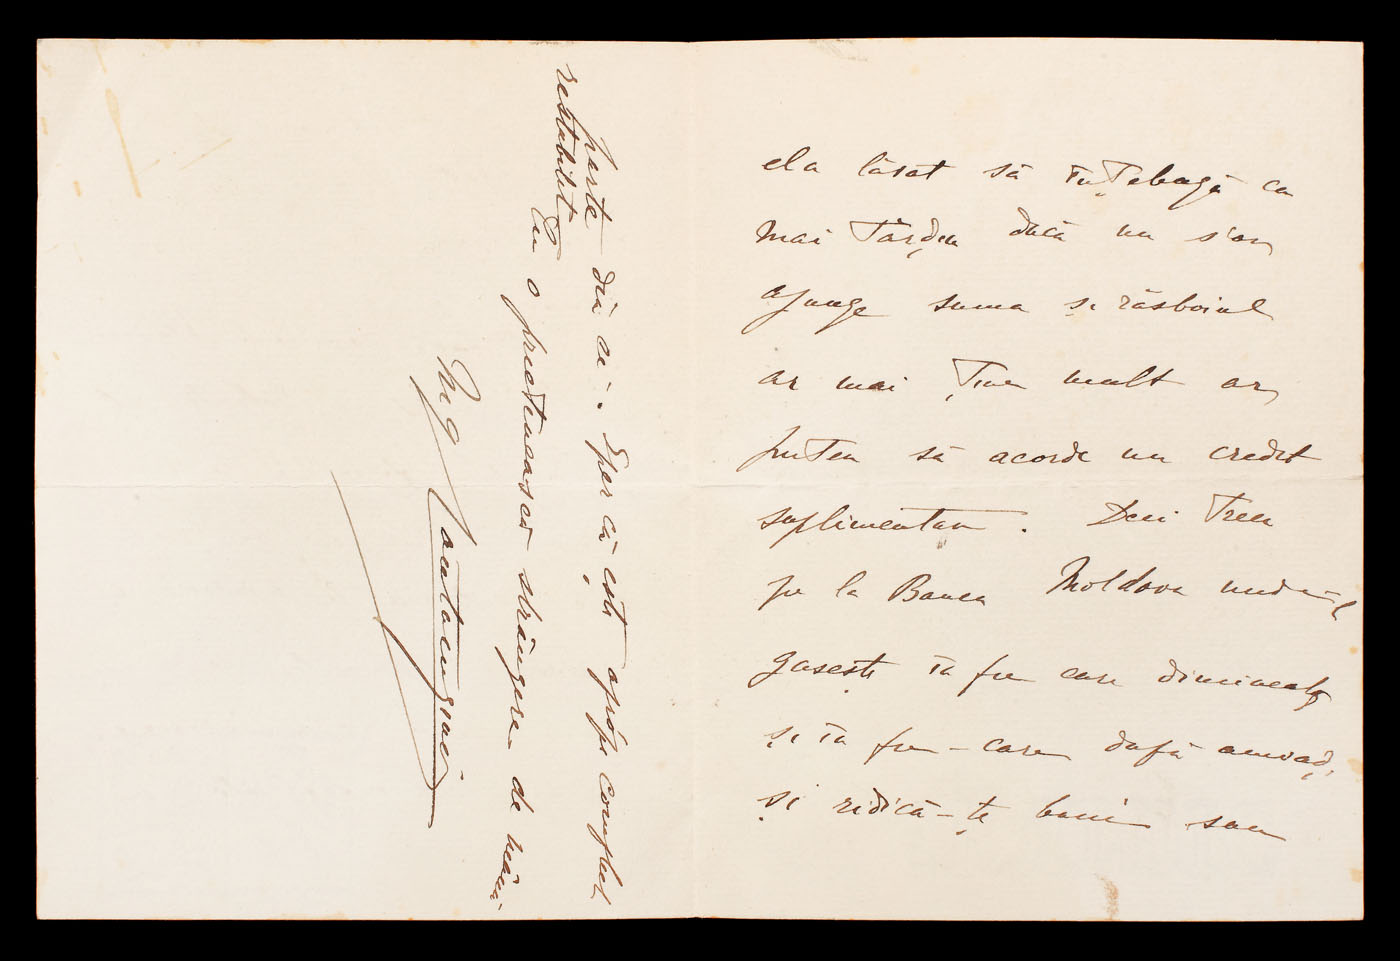 el a lăsat să înțeleagă că
mai tărziu dacă nu s'ar
ajunge suma și răsboiul
ar mai ține mult ar
putea să acorde un credit
suplimentar. Deci treci
pe la Banca Moldova unde-l
gasești în fie care dimineață
și în fie-care după amiază,
și ridică-ți banii sau
parte din ei. Sper că ești aprópe complect
restabilit
Cu o prietenească strângere de mână
M. G. Cantacuzino